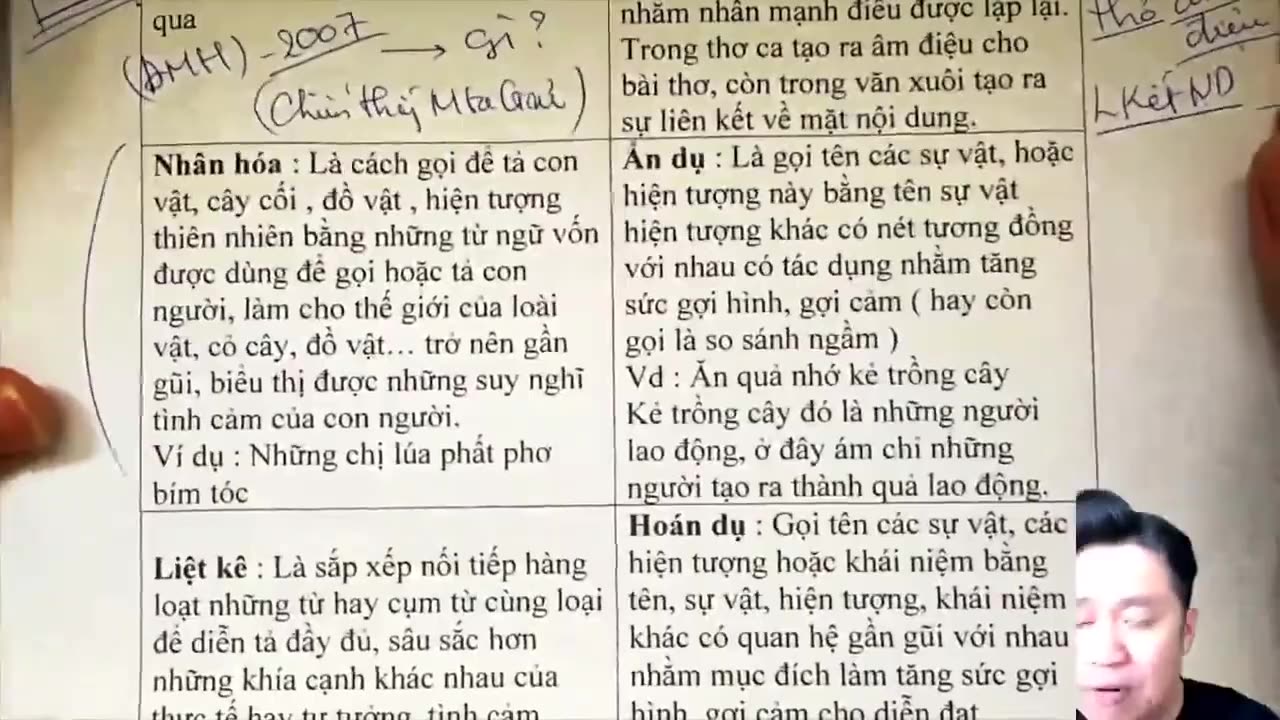 qua
(ĐMH) - 2007 → Gì ?
(Chiến thắng Mtao Grư)
nhằm nhấn mạnh điều được lặp lại.
Trong thơ ca tạo ra âm điệu cho
bài thơ, còn trong văn xuôi tạo ra
sự liên kết về mặt nội dung.
thơ
điệu
L Kết ND
Nhân hóa : Là cách gọi để tả con
vật, cây cối , đồ vật , hiện tượng
thiên nhiên bằng những từ ngữ vốn
được dùng để gọi hoặc tả con
người, làm cho thế giới của loài
vật, cỏ cây, đồ vật… trở nên gần
gũi, biểu thị được những suy nghĩ
tình cảm của con người.
Ví dụ : Những chị lúa phất phơ
bím tóc
Ẩn dụ : Là gọi tên các sự vật, hoặc
hiện tượng này bằng tên sự vật
hiện tượng khác có nét tương đồng
với nhau có tác dụng nhằm tăng
sức gợi hình, gợi cảm ( hay còn
gọi là so sánh ngầm )
Vd : Ăn quả nhớ kẻ trồng cây
Kẻ trồng cây đó là những người
lao động, ở đây ám chỉ những
người tạo ra thành quả lao động.
Liệt kê : Là sắp xếp nối tiếp hàng
loạt những từ hay cụm từ cùng loại
để diễn tả đầy đủ, sâu sắc hơn
những khía cạnh khác nhau của
thực tế hay tư tưởng, tình cảm
Hoán dụ : Gọi tên các sự vật, các
hiện tượng hoặc khái niệm bằng
tên, sự vật, hiện tượng, khái niệm
khác có quan hệ gần gũi với nhau
nhằm mục đích làm tăng sức gợi
hình, gợi cảm cho diễn đạt